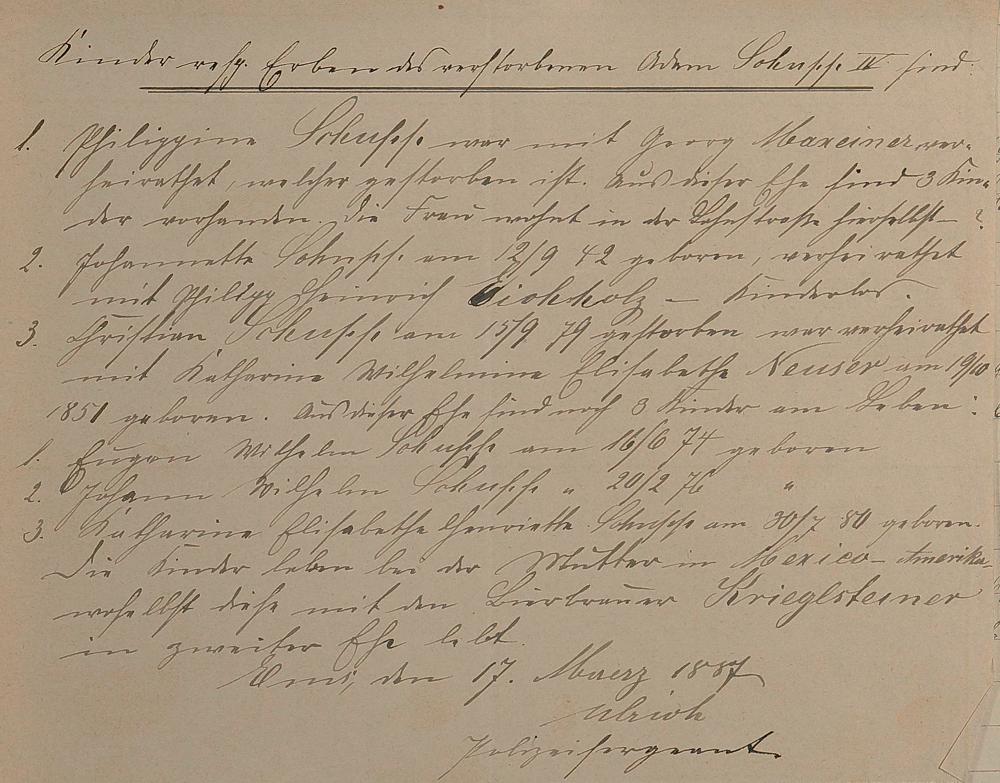 Kinder resp. Erben des verstorbenen Adam Schupp IV sind:
1. Philippine Schupp war mit Georg Maxeiner ver-
heirathet, welcher gestorben ist. Aus dieser Ehe sind 3 Kin-
der vorhanden. Die Frau wohnt in der Lahnstraße hierselbst
2. Johannette Schupp am 12/9 42 geboren, verheirathet
mit Philipp Heinrich Eichholz – Kinderlos.
3. Christian Schupp am 15/9 79 gestorben war verheirathet
mit Katharine Wilhelmine Elisabethe Neuser am 19/10
1851 geboren. Aus dieser Ehe sind noch 3 Kinder am Leben:
1. Eugen Wilhelm Schupp am 16/6 74 geboren
2. Johann Wilhelm Schupp " 20/2 76 "
3. Katharine Elisabethe Henriette Schupp am 30/7 80 geboren.
Die Kinder leben bei der Mutter in Mexico-Amerika
woselbst diese mit dem Bierbrauer Krieglsteiner
in zweiter Ehe lebt.
Ems, den 17. Maerz 1887
Ulrich
Polizeisergeant.